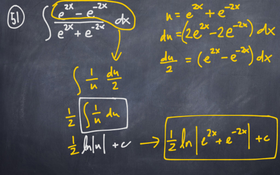 51
∫ (e^{2x} - e^{-2x}) / (e^{2x} + e^{-2x}) dx
u = e^{2x} + e^{-2x}
du = (2e^{2x} - 2e^{-2x}) dx
du/2 = (e^{2x} - e^{-2x}) dx
∫ 1/u du/2
1/2 ∫ 1/u du
1/2 ln|u| + c → 1/2 ln|e^{2x} + e^{-2x}| + c